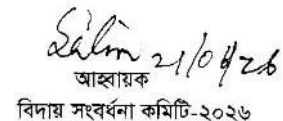 Salim 21/04/26
আহবায়ক
বিদায় সংবর্ধনা কমিটি-২০২৬